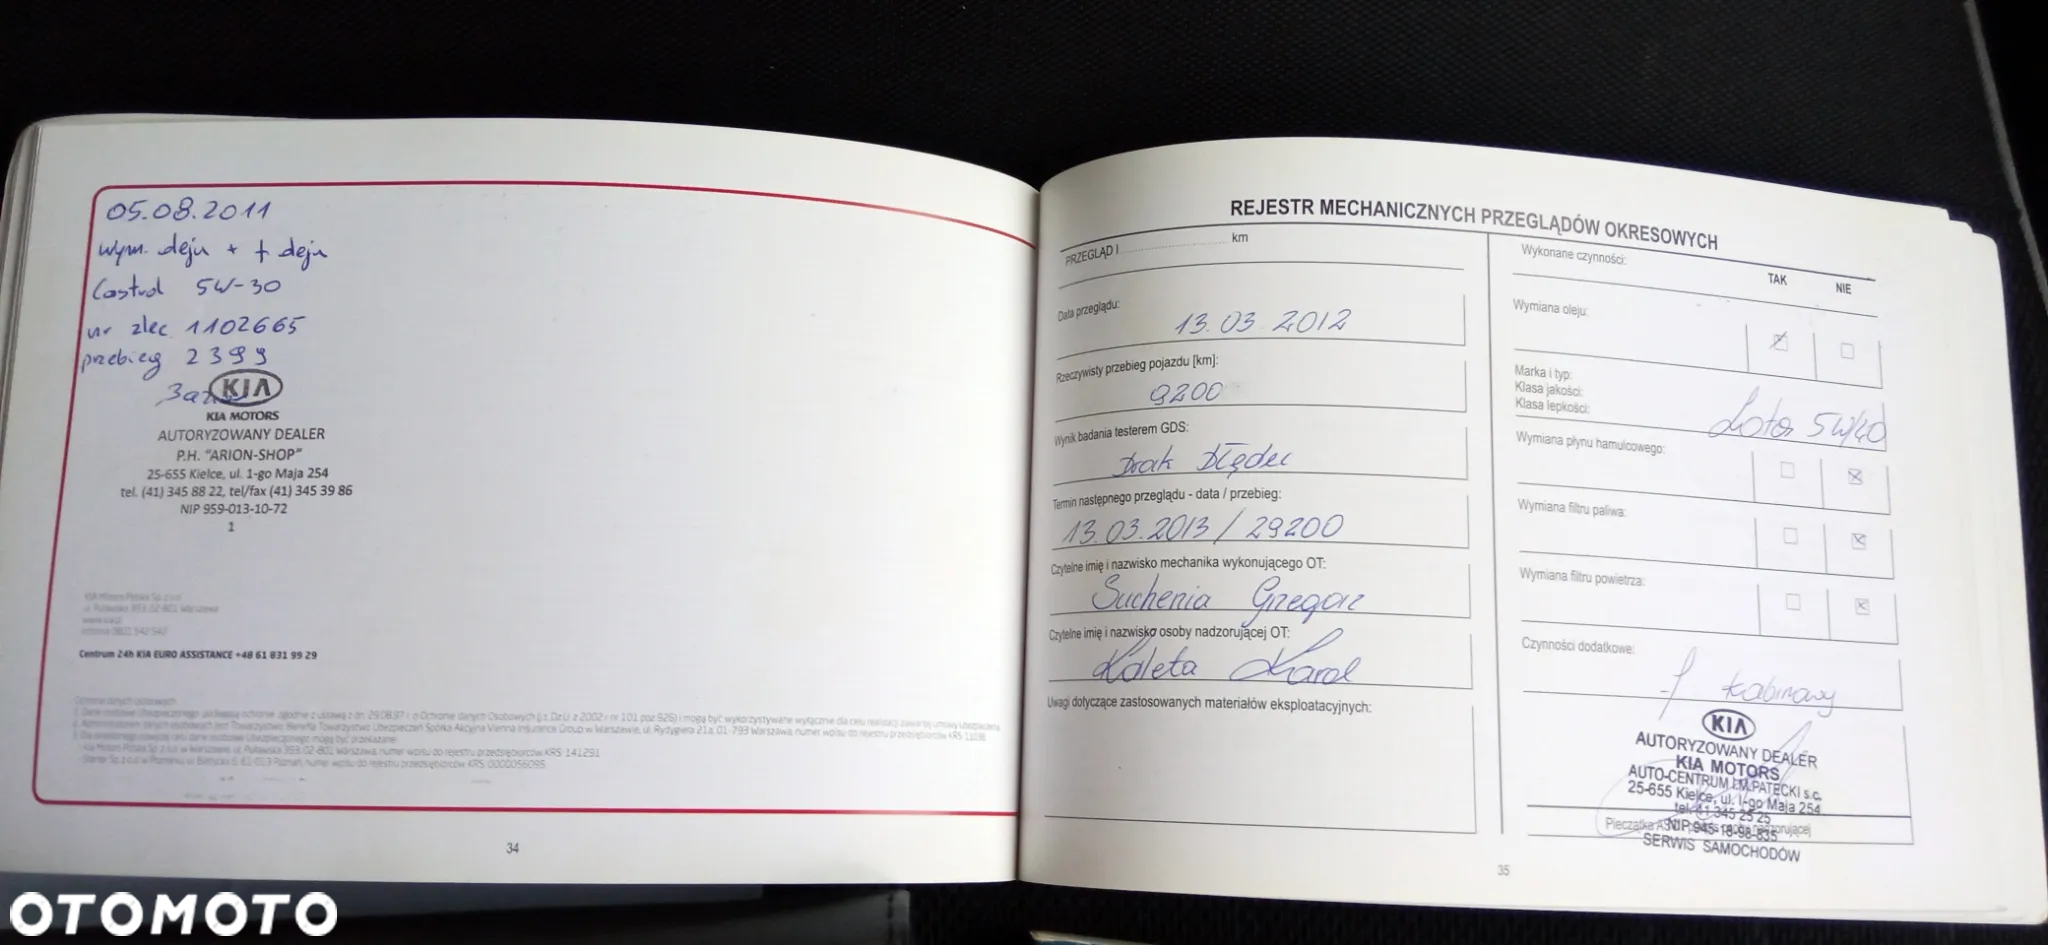 05.08.2011
wym. oleju + f oleju
Castrol 5W-30
nr zlec. 1102665
przebieg 2399
KIA
KIA MOTORS
AUTORYZOWANY DEALER
P.H. "ARION-SHOP"
25-655 Kielce, ul. 1-go Maja 254
tel. (41) 345 88 22, tel/fax (41) 345 39 86
NIP 959-013-10-72
1
KIA Motors Polska Sp. z o.o.
ul. Puławska 353, 02-801 Warszawa
Centrum 24h KIA EURO ASSISTANCE +48 61 831 99 29
34
REJESTR MECHANICZNYCH PRZEGLĄDÓW OKRESOWYCH
PRZEGLĄD I ........................ km
Data przeglądu:
13.03.2012
Rzeczywisty przebieg pojazdu [km]:
9200
Wynik badania testerem GDS:
Brak Błędów
Termin następnego przeglądu - data / przebieg:
13.03.2013 / 29200
Czytelne imię i nazwisko mechanika wykonującego OT:
Suchenia Grzegorz
Czytelne imię i nazwisko osoby nadzorującej OT:
Koleta Karol
Uwagi dotyczące zastosowanych materiałów eksploatacyjnych:
Wykonane czynności:
TAK NIE
Wymiana oleju:
Marka i typ:
Klasa jakości:
Klasa lepkości:
Lotos 5W/40
Wymiana płynu hamulcowego:
Wymiana filtru paliwa:
Wymiana filtru powietrza:
Czynności dodatkowe:
f kabinowy
KIA
AUTORYZOWANY DEALER
KIA MOTORS
AUTO-CENTRUM I.M.PATECKI s.c.
25-655 Kielce, ul. 1-go Maja 254
tel. 41 345 25 25
NIP 945-18-98-835
SERWIS SAMOCHODÓW
35
OTOMOTO